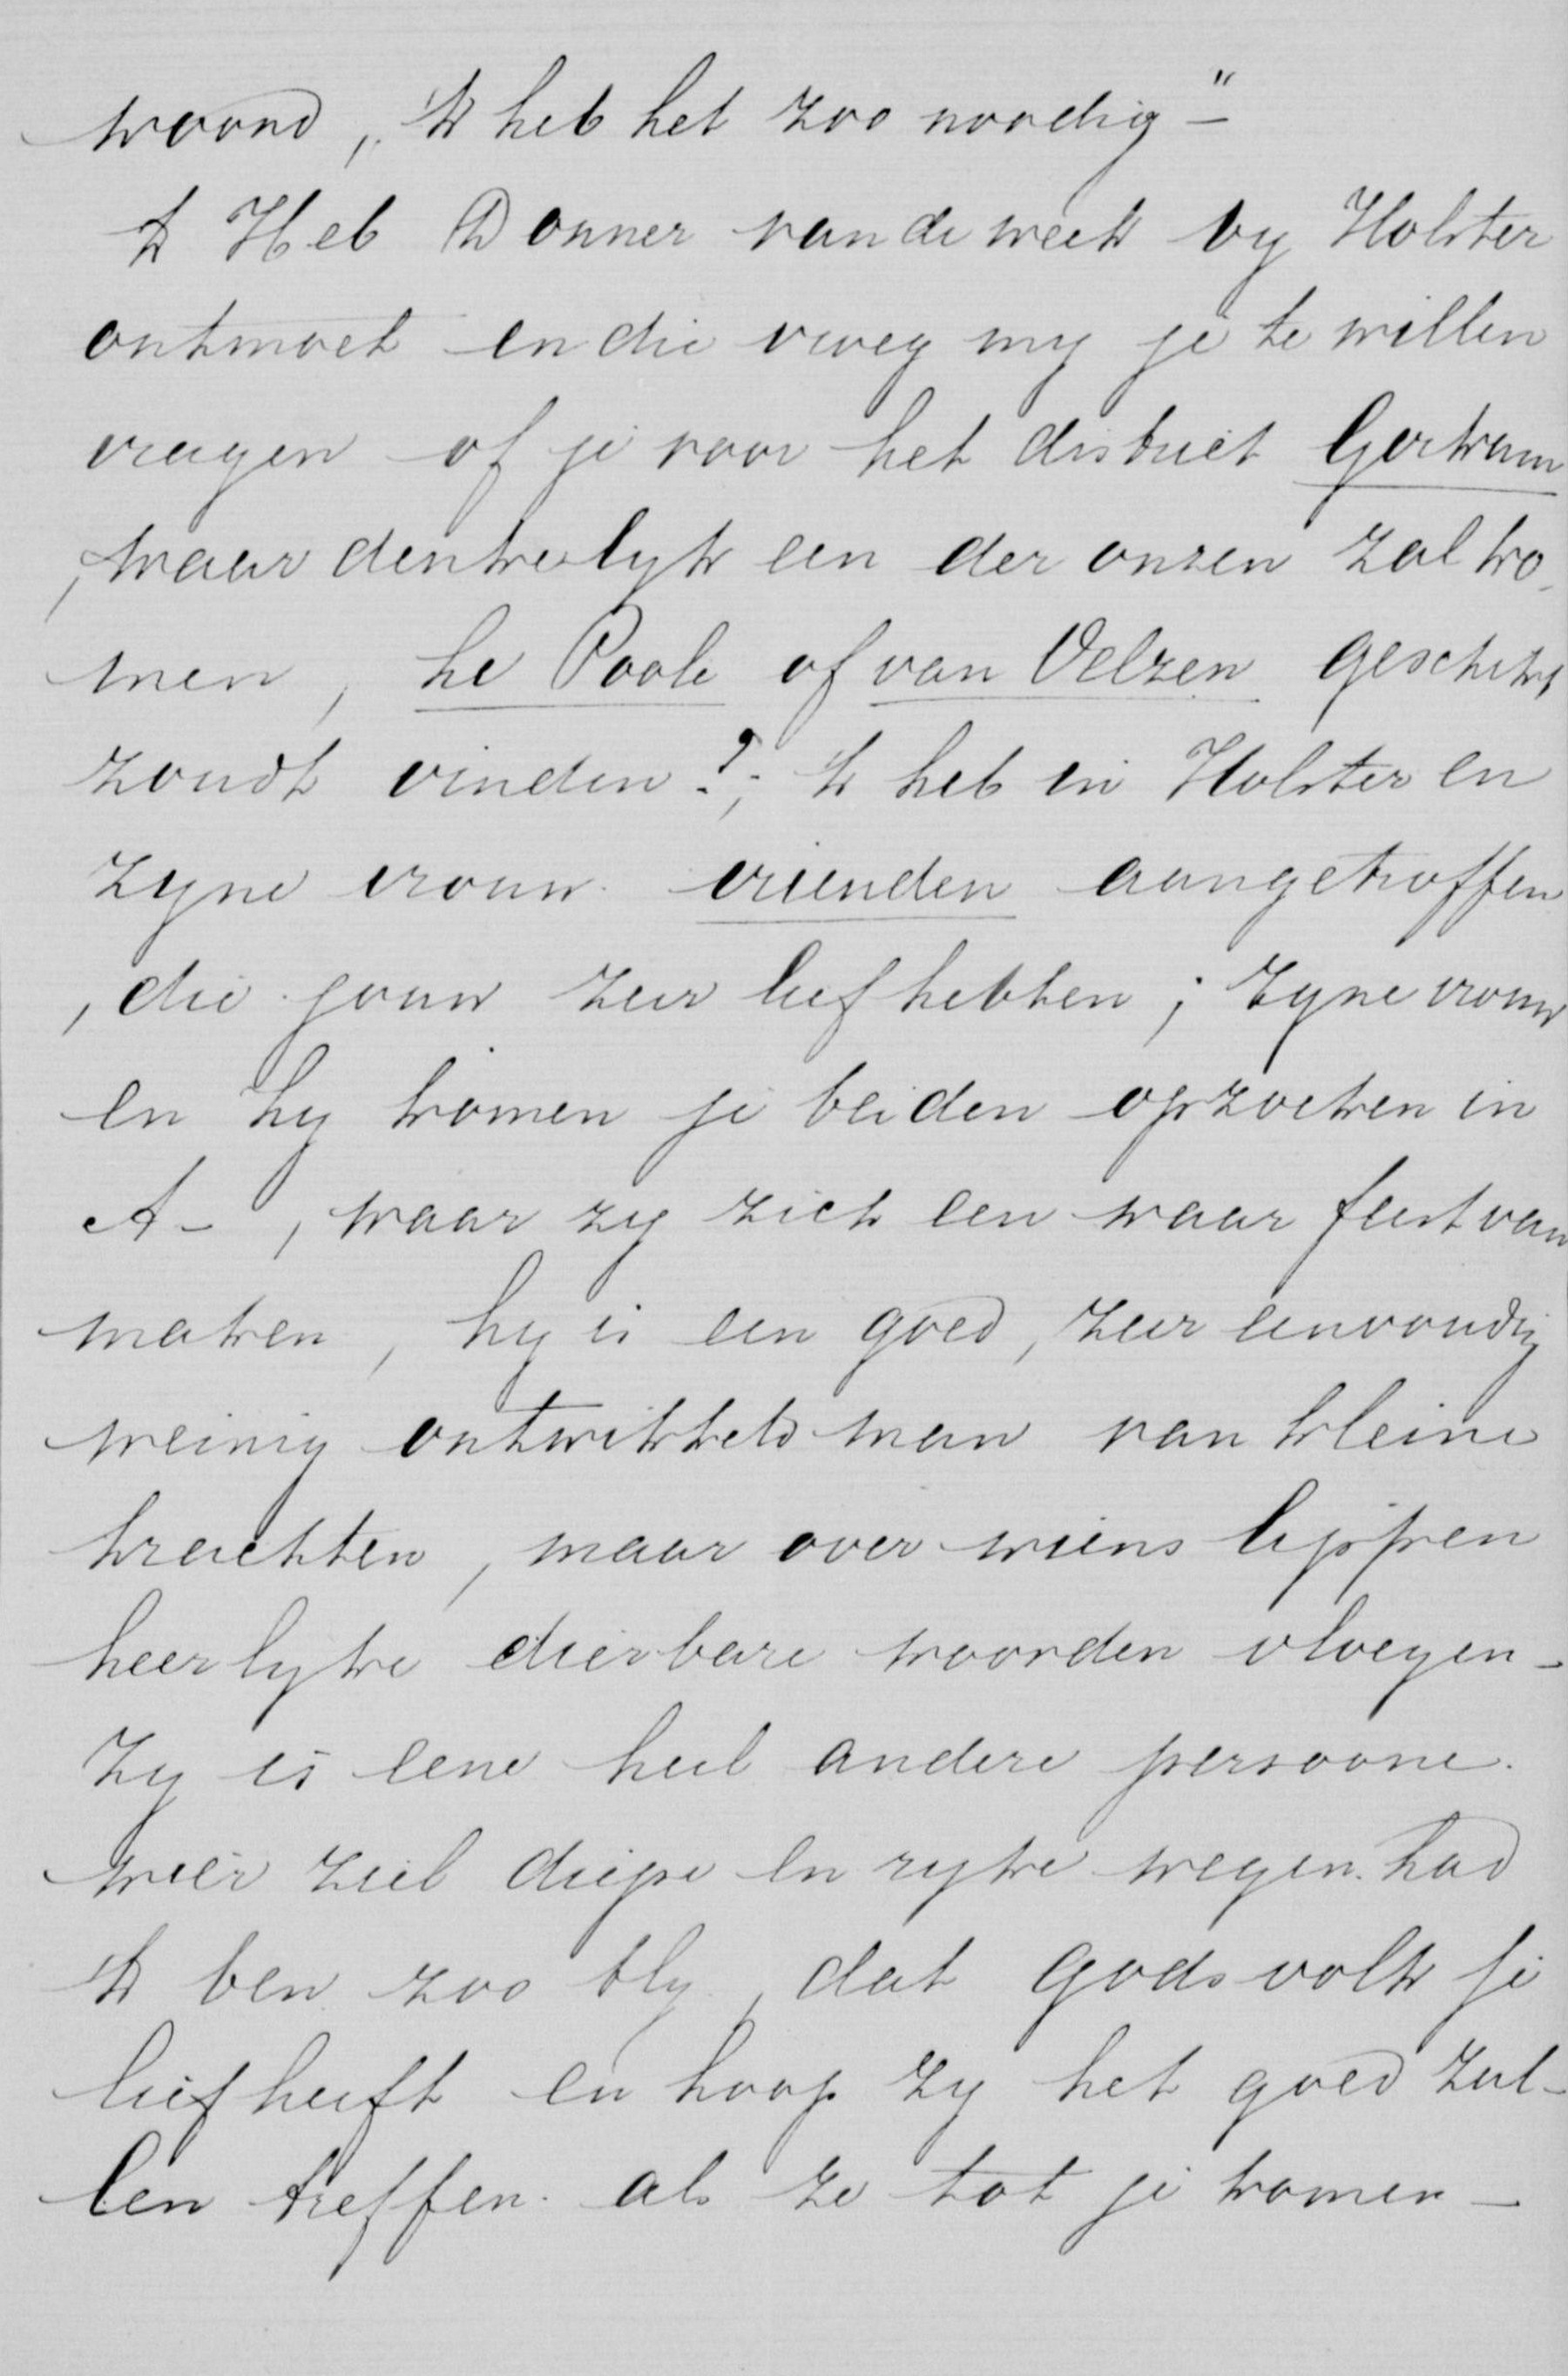 woond, „Ik heb het zoo noodig"-
Ik Heb Donner van de week by Holster
ontmoet en die vroeg my je te willen
vragen of je voor het district Gorkum
, waar denkelyk een der onzen zal ko-
men, he Poole of van Velzen geschikt
zoudt vinden?; Ik heb in Holster en
zyne vrouw vrienden aangetroffen
, die jouw zeer lief hebben; zyne vrouw
en hy komen je beiden opzoeken in
A-, waar zy zich een waar feest van
maken, hy is een goed, zeer eenvoudig
weinig ontwikkeld man van kleine
krachten, maar over wiens lippen
heerlyke dierbare woorden vloeyen-
Zy is eene heel andere persoone.
wier ziel diepe en ryke wegen had
Ik ben zoo bly, dat Gods volk je
lief heeft en hoop zy het goed zul-
len treffen als ze tot je komen-